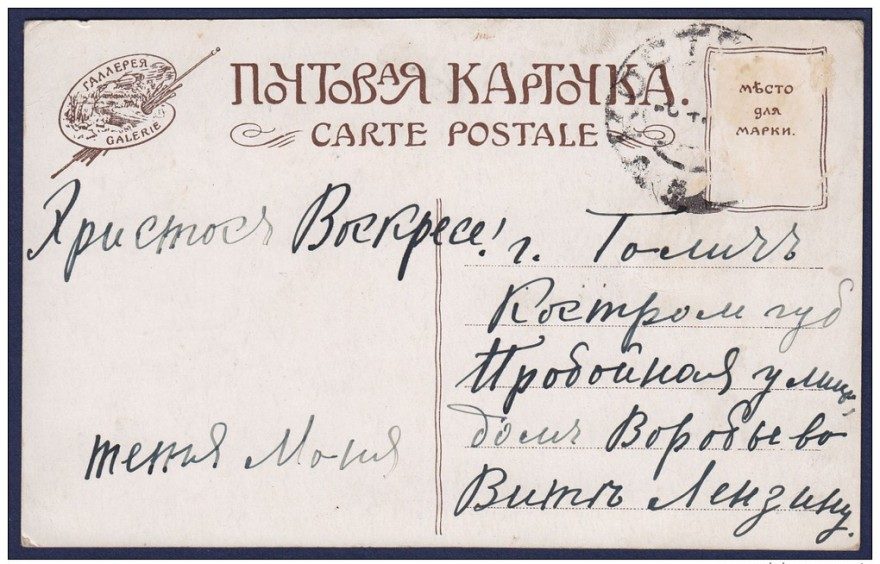 ГАЛЛЕРЕЯ
GALERIE
ПОЧТОВАЯ КАРТОЧКА.
CARTE POSTALE
МѢСТО
ДЛЯ
МАРКИ.
Христосъ Воскресе!
тетя Маня
г. Галичъ
Костром губ
Пробойная улица
домъ Воробьево
Витѣ Лензину.